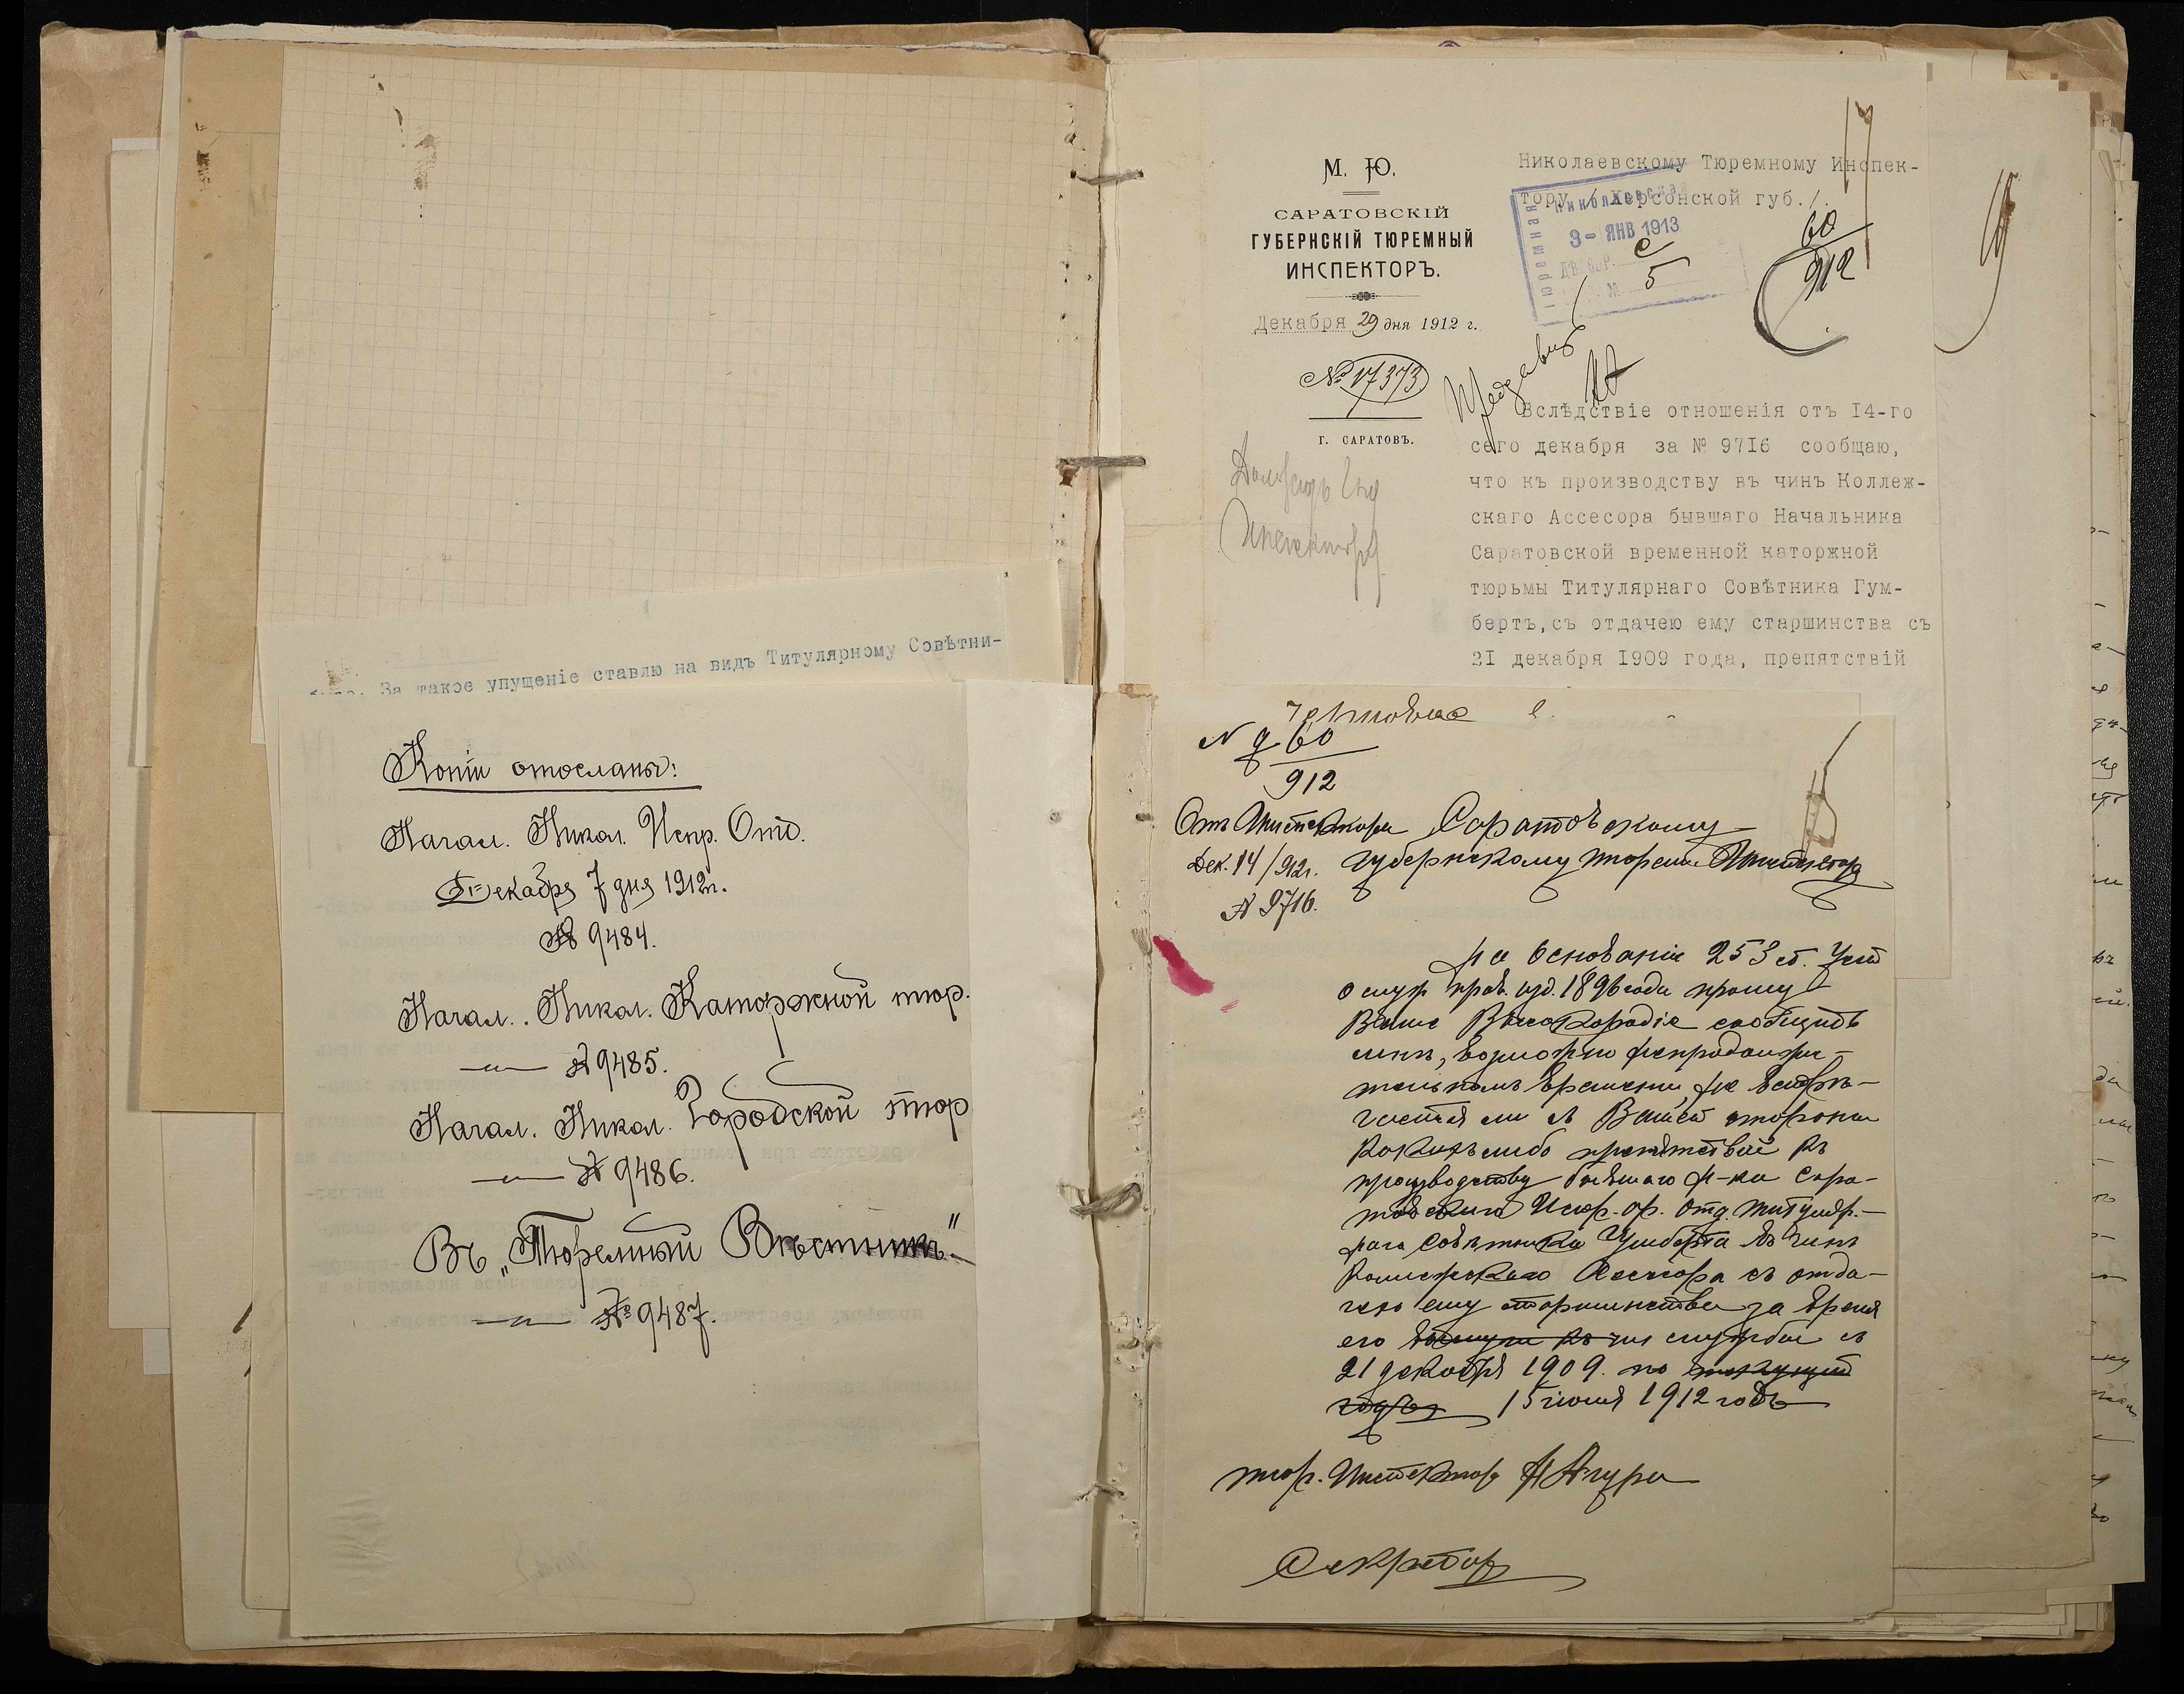 За такое упущеніе ставлю на видъ Титулярному Совѣтни-
Копіи отосланы:
Начал. Никол. Испр. Отд.
Декабря 7 дня 1912 г.
№ 9484.
Начал. Никол. Каторжной тюр.
—"— № 9485.
Начал. Никол. Городской тюр
—"— № 9486.
Въ „Тюремный Вѣстникъ"
—"— № 9487.
М. Ю.
САРАТОВСКІЙ
ГУБЕРНСКІЙ ТЮРЕМНЫЙ
ИНСПЕКТОРЪ.
Декабря 29 дня 1912 г.
№ 17373
Г. САРАТОВЪ.
Николаевскому Тюремному Инспек-
тору /Херсонской губ./.
Николаевская
Тюремная
3- ЯНВ 1913
№ 5
60
912
Вслѣдствіе отношенія отъ 14-го
сего декабря за № 9716 сообщаю,
что къ производству въ чинъ Коллеж-
скаго Ассесора бывшаго Начальника
Саратовской временной каторжной
тюрьмы Титулярнаго Совѣтника Гум-
бертъ,съ отдачею ему старшинства съ
21 декабря 1909 года, препятствій
№ 60
912
Отъ Инспектора
Дек. 14/912г.
№ 9716.
Саратовскому
Губернскому тюремн. Инспектору
На основаніи 253 ст. Уст
о служ прав. изд. 1896 года прошу
Ваше Высокородіе сообщить
мнѣ, возможно непродолжи-
тельномъ времени, не встрѣ-
чается ли съ Вашей стороны
какихъ либо препятствій къ
производству бывшаго Н-ка Сара-
товскаго Испр. ар. отд. титуляр.-
наго совѣтника Гумберта въ чинъ
Коллежскаго Ассесора съ отда-
чею ему старшинства за время
его выслуги къ чин службы съ
21 декабря 1909. по текущій
годъ 15 іюня 1912 годъ
тюр. Инспекторъ
Секретарь